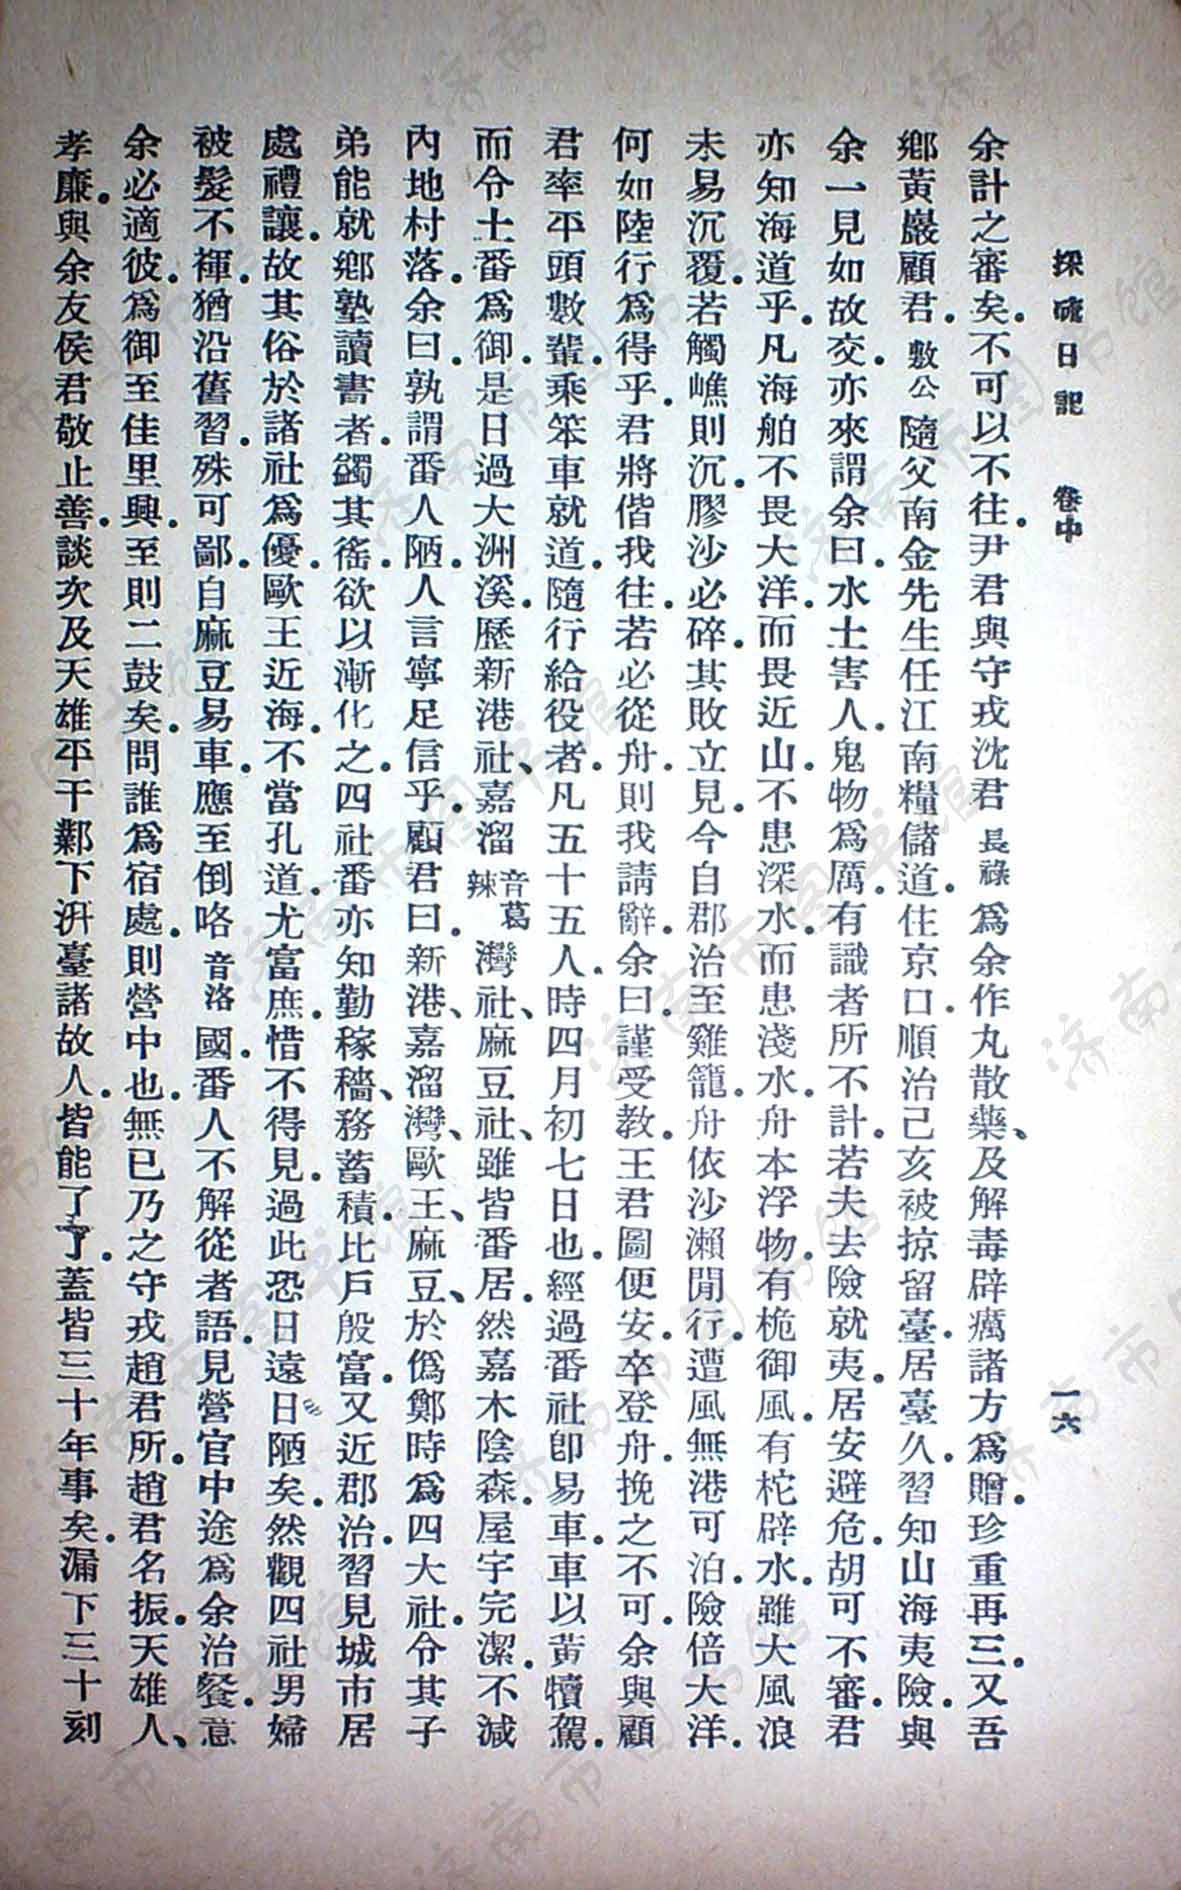 採硫日記　卷中　一六
余計之審矣。不可以不往。尹君與守戎沈君長祿爲余作丸散藥、及解毒辟癘諸方爲贈。珍重再三。又吾
鄉黃巖顧君。敷公隨父南金先生任江南糧儲道。住京口。順治己亥被掠留臺。居臺久。習知山海夷險。與
余一見如故交。亦來謂余曰。水土害人。鬼物爲厲。有識者所不計。若夫去險就夷。居安避危。胡可不審。君
亦知海道乎。凡海舶不畏大洋。而畏近山。不患深水。而患淺水。舟本浮物。有桅御風。有柁辟水。雖大風浪
未易沉覆。若觸礁則沉。膠沙必碎。其敗立見。今自郡治至雞籠。舟依沙瀨閒行。遭風無港可泊。險倍大洋。
何如陸行爲得乎。君將偕我往。若必從舟。則我請辭。余曰。謹受教。王君圖便安。卒登舟。挽之不可。余與顧
君率平頭數輩。乘笨車就道。隨行給役者。凡五十五人。時四月初七日也。經過番社卽易車。車以黃犢駕。
而令土番爲御。是日過大洲溪。歷新港社、嘉溜音葛辣灣社、麻豆社、雖皆番居。然嘉木陰森。屋宇完潔。不減
內地村落。余曰。孰謂番人陋。人言寧足信乎。顧君曰。新港、嘉溜灣、歐王、麻豆、於僞鄭時爲四大社。令其子
弟能就鄉塾讀書者。蠲其徭。欲以漸化之。四社番亦知勤稼穡、務蓄積。比戶殷富。又近郡治。習見城市居
處禮讓。故其俗於諸社爲優。歐王近海。不當孔道。尤富庶。惜不得見。過此恐日遠日陋矣。然觀四社男婦
被髮不褌。猶沿舊習。殊可鄙。自麻豆易車。應至倒咯音洛國。番人不解從者語。見營官中途爲余治餐。意
余必適彼。爲御至佳里興。至則二鼓矣。問誰爲宿處。則營中也。無已乃之守戎趙君所。趙君名振。天雄人、
孝廉。與余友侯君敬止善。談次及天雄平干鄴下汧臺諸故人。皆能了了。蓋皆三十年事矣。漏下三十刻